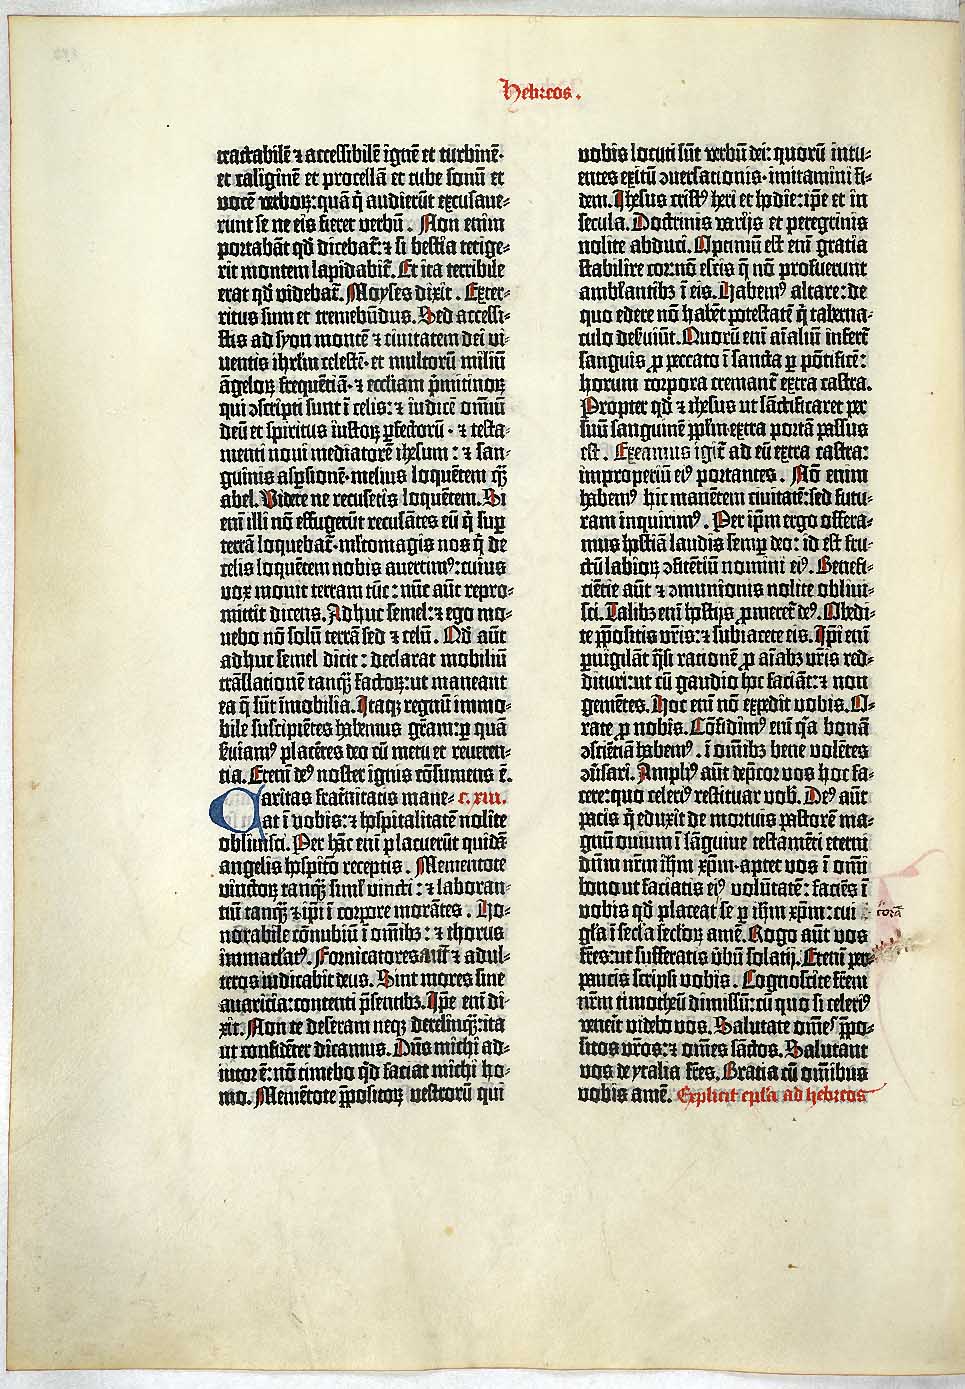 Hebreos.
tractabilē ⁊ accessibilē ignē et turbinē·
et caliginē et procellā et tube sonū et
vocē verboꝝ: quā q̄ audierūt excusaue-
runt se ne eis fieret verbū. Non enim
portabāt qd̄ dicebat̄: ⁊ si bestia tetige-
rit montem lapidabit̄. Et ita terribile
erat qd̄ videbat̄. Moyses dixit. Exter-
ritus sum et tremebūdus. Sed accessi-
stis ad syon montē ⁊ ciuitatem dei vi-
uentis ihrl̄m celestē· et multorū miliū
āgeloꝝ frequētiā· ⁊ eccl̄iam p̄mitiuoꝝ
qui ꝯscripti sunt ī celis: ⁊ iudicē om̄iū
deū et spiritus iustoꝝ ꝑfectorū· ⁊ testa-
menti noui mediatorē ih̄esum: ⁊ san-
guinis aspersionē· melius loquētem qꝫ̄
abel. Videte ne recusetis loquētem. Si
eni illi nō effugerūt recusātes eū q̄ suꝑ
terrā loquebat̄· ml̄tomagis nos q̄ de
celis loquētem nobis auertimꝰ: cuius
vox mouit terram tūc: nūc aūt repro-
mittit dicens. Adhuc semel: ⁊ ego mo-
uebo nō solū terrā sed ⁊ celū. Qd̄ aūt
adhuc semel dicit: declarat mobiliū
trāslationē tanqꝫ̄ factoꝝ: ut maneant
ea q̄ sūt īmobilia. Itaqꝫ regnū immo-
bile suscipiētes habemus gr̄am: ꝑ quā
s̄uiamꝰ placētes deo cū metu et reueren-
tia. Eteni deꝰ noster ignis cōsumens ē.
Caritas frat̄nitatis mane- c. xiii.
at ī vobis: ⁊ hospitalitatē nolite
obliuisci. Per hāc eni placuerūt quidā
angelis hospitō receptis. Mementote
vinctoꝝ tanqꝫ̄ siml̄ vincti: ⁊ laboran-
tiū tanqꝫ̄ ⁊ ip̄i ī corpore morātes. Ho-
norabile cōnubiū ī om̄ibꝫ: ⁊ thorus
immacl̄atꝰ. Fornicatores aūt ⁊ adul-
teros iudicabit deus. Sint mores sine
auaricia: contenti p̄sentibꝫ. Ip̄e eni di-
xit. Non te deseram neqꝫ derelinqꝫ̄: ita
ut confidēter dicamus. Dn̄s michi ad-
iutor ē: nō timebo qd̄ faciat michi ho-
mo. Memētote p̄positoꝝ vestrorū qui
vobis locuti sūt verbū dei: quorū intu-
entes exitū ꝯuersationis· imitamini fi-
dem. Ihesus cristꝰ heri et hodie: ip̄e et in
secula. Doctrinis varijs et peregrinis
nolite abduci. Optimū est eni gratia
stabilire cor: nō escis q̄ nō profuerunt
ambl̄antibꝫ ī eis. Habemꝰ altare: de
quo edere nō habēt potestatē q̄ taberna-
culo deseruiūt. Quorū eni aīaliū infert̄
sanguis ꝓ peccato ī sancta ꝑ pōtificē:
horum corpora cremant̄ extra castra.
Propter qd̄ ⁊ ih̄esus ut sāctificaret per
suū sanguinē pp̄lm· extra portā passus
est. Exeamus igit̄ ad eū extra castra:
improperiū eiꝰ portantes. Nō enim
habemꝰ hic manētem ciuitatē: sed futu-
ram inquirimꝰ. Per ip̄m ergo offera-
mus hostiā laudis semꝑ deo: id est fru-
ctū labioꝝ ꝯfitētiū nomini eiꝰ. Benefi-
ciētie aūt ⁊ ꝯmunionis nolite obliui-
sci. Talibꝫ eni hostijs ꝓmeret̄ deꝰ. Obedi-
te p̄positis vr̄is: ⁊ subiacete eis. Ip̄i eni
ꝑuigilāt q̄si rationē ꝓ aīabꝫ vr̄is red-
dituri: ut cū gaudio hoc faciāt: ⁊ non
gemētes. Hoc eni nō expedit vobis. O-
rate ꝓ nobis. Cōfidimꝰ eni q̄a bonā
ꝯsciētiā habemꝰ. ī om̄ibꝫ bene volētes
ꝯūsari. Ampliꝰ aūt dep̄cor vos hoc fa-
cere: quo celeriꝰ restituar vob̄. Deꝰ aūt
pacis q̄ eduxit de mortuis pastorē ma-
gnū ouium ī sanguine testamēti eterni
dn̄m nr̄m ih̄m xp̄m· aptet vos ī om̄i
bono ut faciatis eiꝰ volūtatē: faciēs ī
vobis qd̄ placeat se ꝑ ih̄m xp̄m: cui ē corā
gl̄a ī secl̄a secl̄oꝝ amē. Rogo aūt vos
fr̄es: ut sufferatis v̄bū solatij. Eteni per-
paucis scripsi vobis. Cognoscite fr̄em
nr̄m timotheū dimissū: cū quo si celeriꝰ
venerit videbo vos. Salutate om̄eˢ p̄po-
sitos vr̄os: ⁊ om̄es sāctos. Salutant
vos de ytalia fr̄es. Gratia cū om̄ibus
vobis amē. Explicit epl̄a ad hebreos